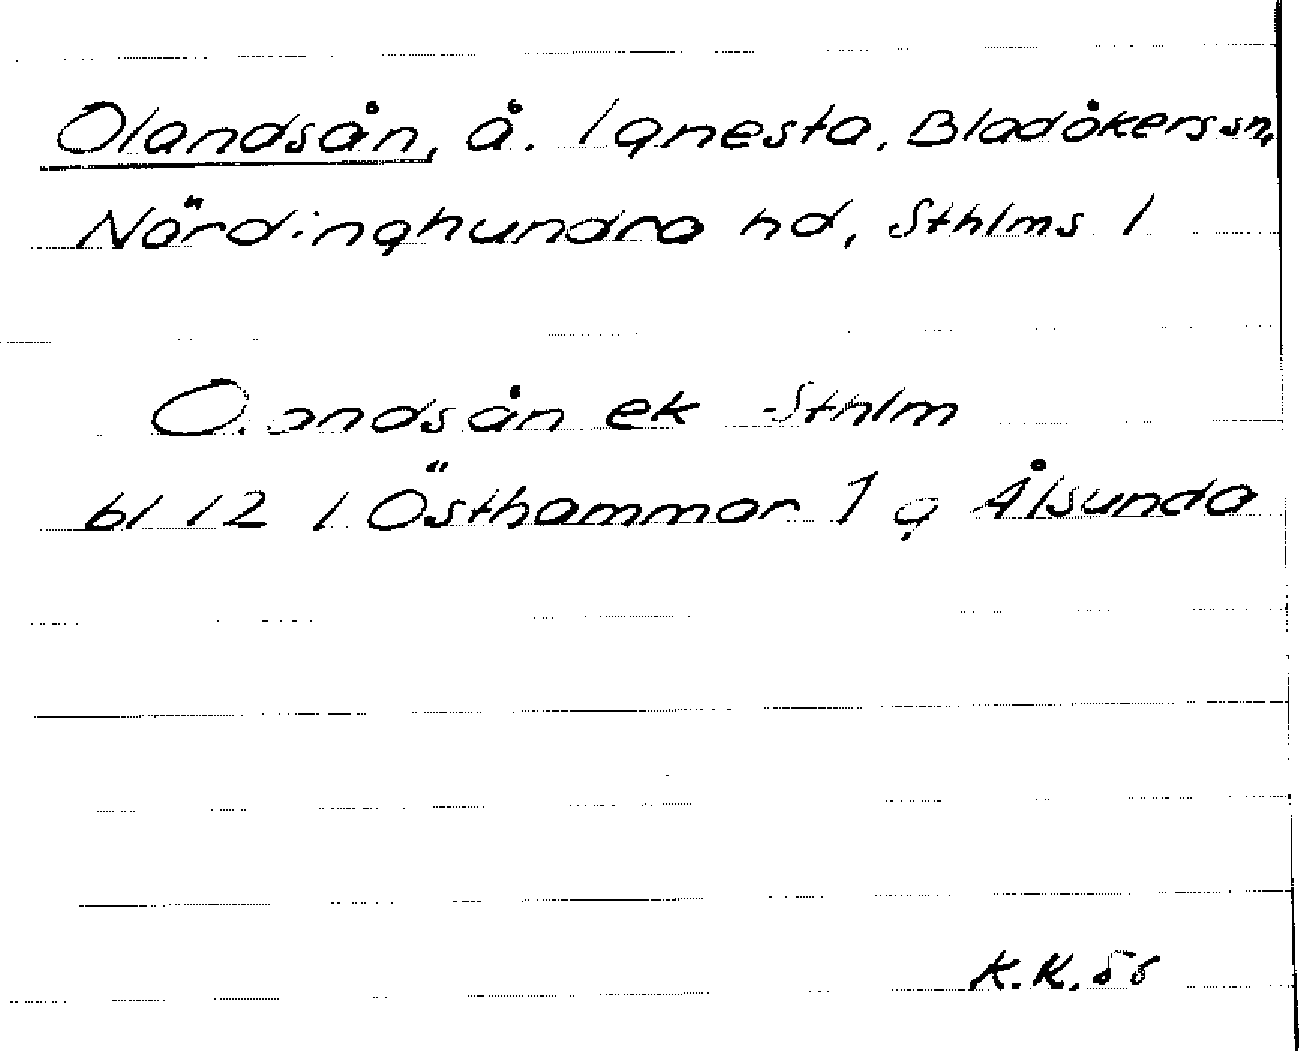 Olandsån, å. Ignesta, Bladåkers sn,
Närdinghundra hd, Sthlms l
Olandsån ek Sthlm
bl 12 l. Östhammar 1 g Ålsunda
K.K. 58